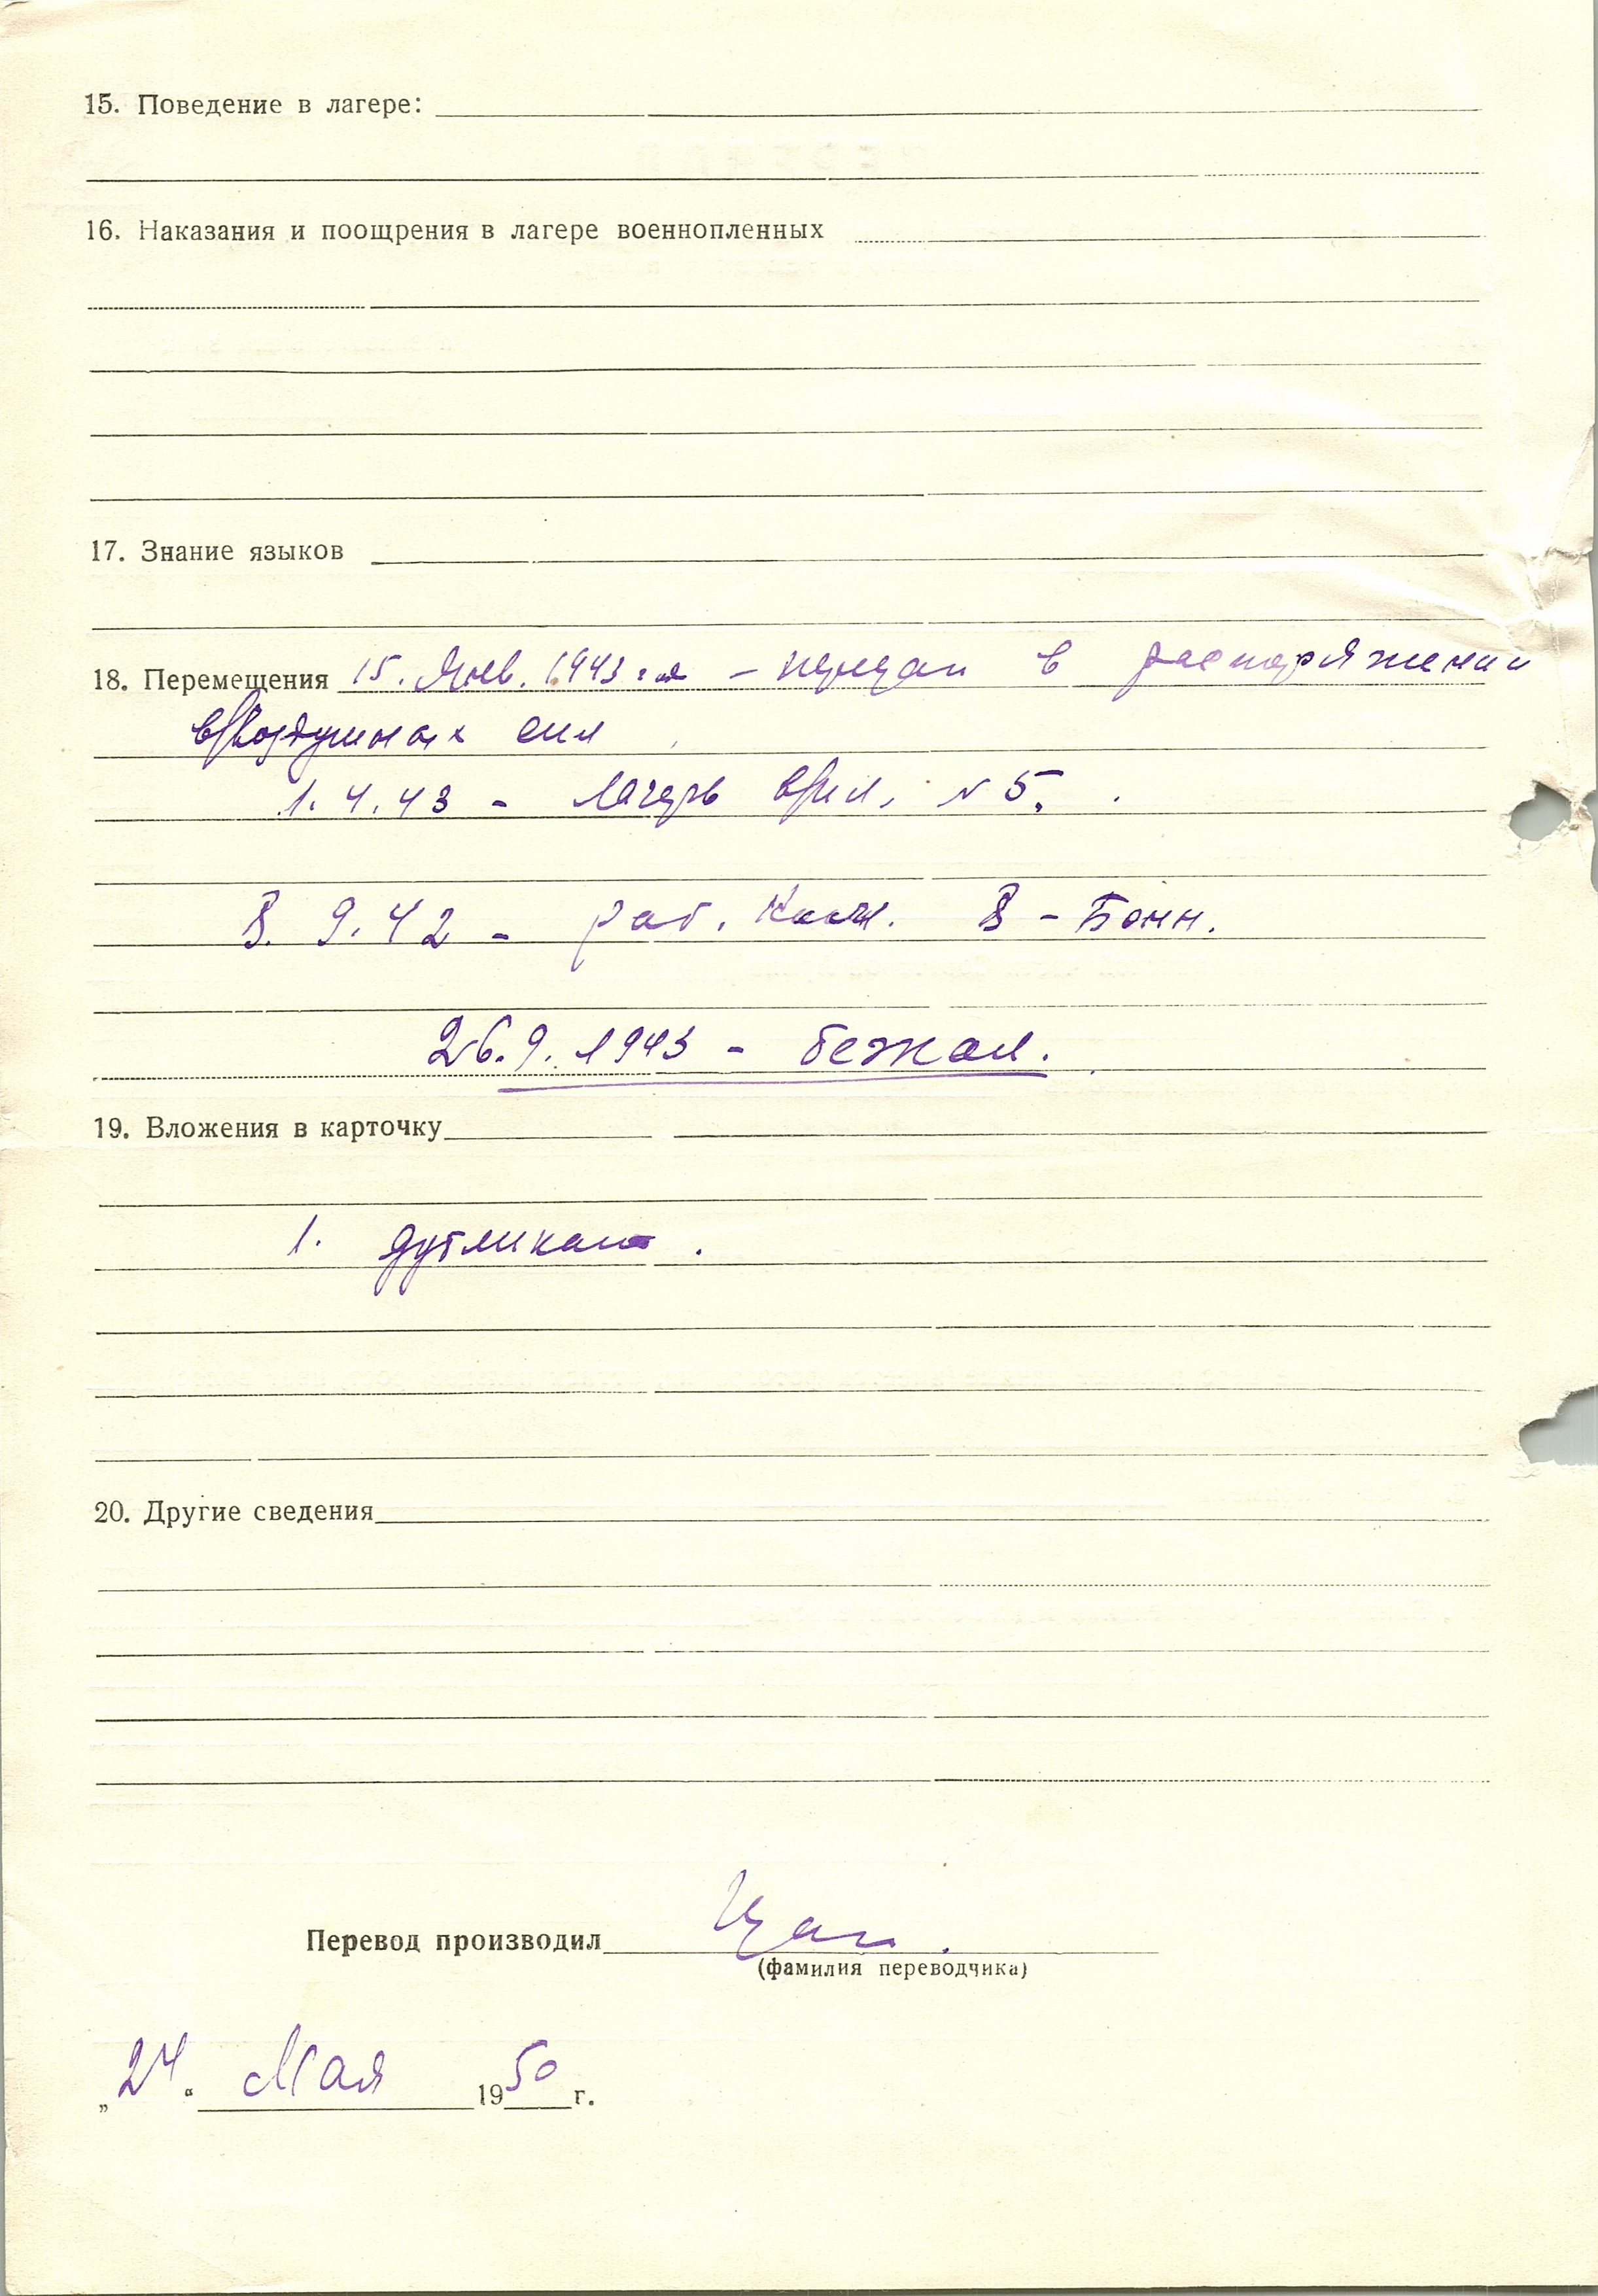 15. Поведение в лагере:
16. Наказания и поощрения в лагере военнопленных
17. Знание языков
18. Перемещения 15. Янв. 1943 – передан в распоряжении
воздушных сил
1.4.43 – лагерь № 5.
8. 9. 42 – раб. 8 – Бонн.
26.9. 1943 – бежал.
19. Вложения в карточку
1. дубликат.
20. Другие сведения
Перевод производил
(фамилия переводчика)
„24“ Мая 1950 г.